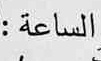 الساعة :